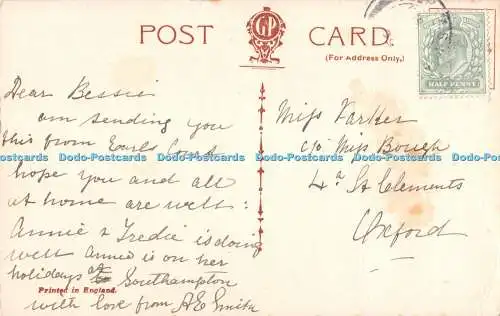 POST CARD.
GP
(For Address Only.)
HALF PENNY
Dear Bessie
am sending you
this from Earls Court
hope you and all
at home are well:
Annie & Fredie is doing
well Annie is on her
holidays at Southampton
with love from A E Smith
Miss Parker
c/o Miss Bough
4a St Clements
Oxford
Printed in England.
Dodo-Postcards Dodo-Postcards Dodo-Postcards Dodo-Postcards Dodo-Postcards